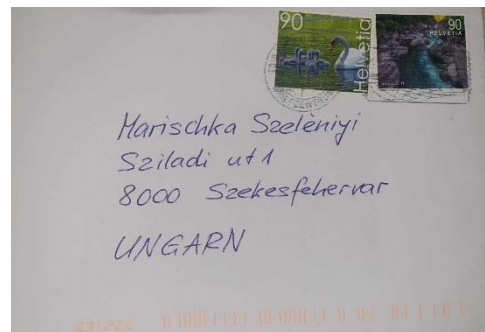 90
Helvetia
90
HELVETIA
Marischka Szelèniyi
Sziladi ut 1
8000 Szekesfehervar
UNGARN